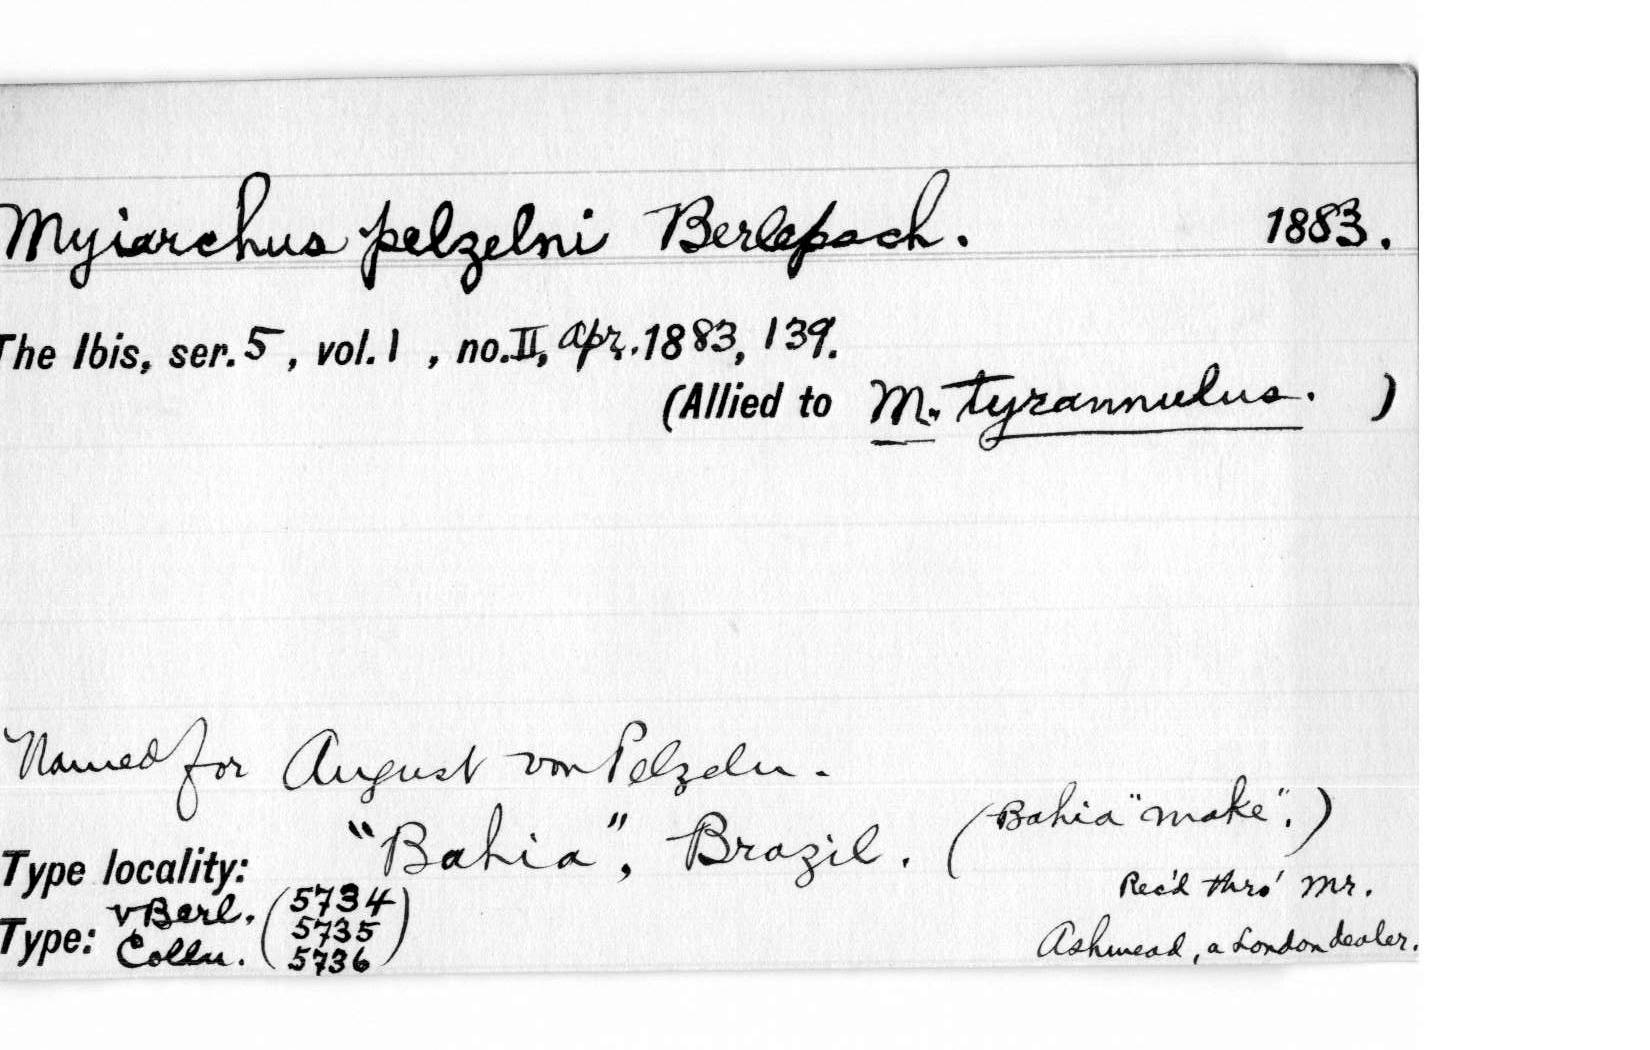 Myiarchus pelzelni Berlepsch. 1883.
The Ibis, ser. 5, vol. 1, no. II, Apr. 1883, 139.
(Allied to M. tyrannulus. )
Named for August von Pelzeln.
(Bahia "make".)
Type locality: "Bahia", Brazil.
Rec'd thro' Mr.
Ashmead, a London dealer.
Type: vBerl. Colln. (5734
5735
5736)